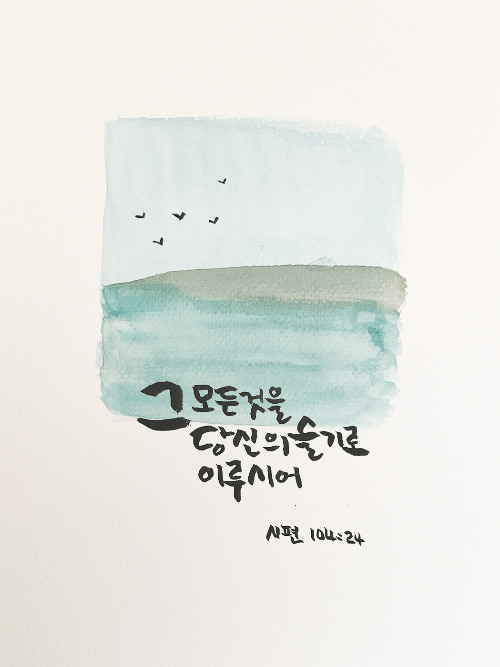 그 모든것을
당신의 슬기로
이루시어
시편 104:24